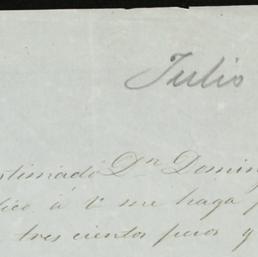 Julio
estimado Dn Domin
lico á V me haga
tres cientos pesos y